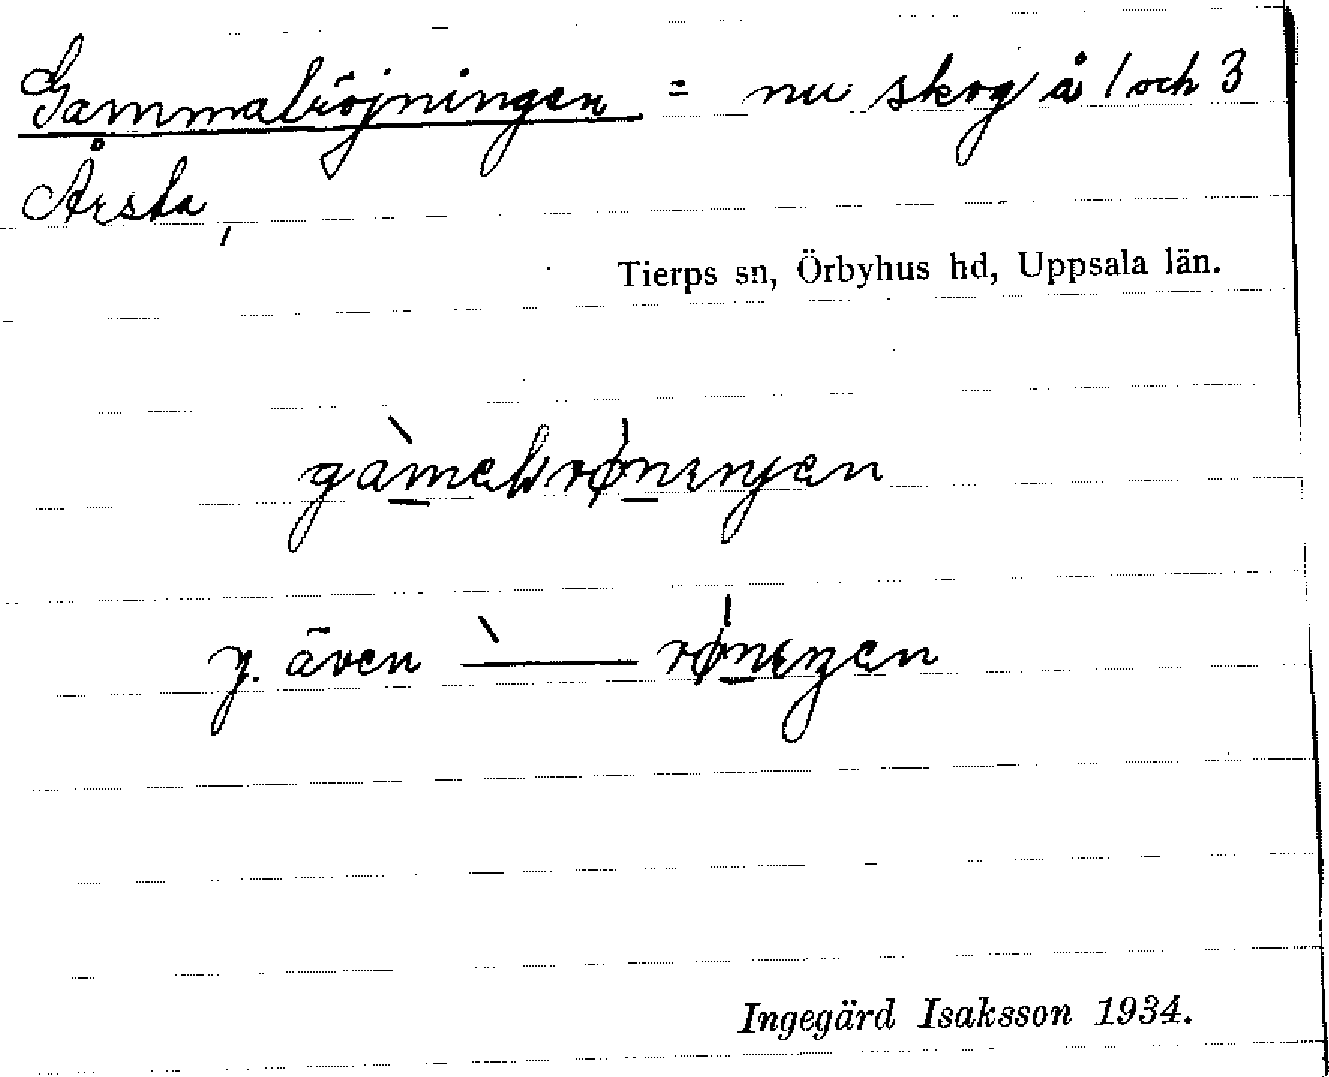 Gammalröjningen = nu skog å 1 och 3
Årsta,
Tierps sn, Örbyhus hd, Uppsala län.
y. även
Ingegärd Isaksson 1934.